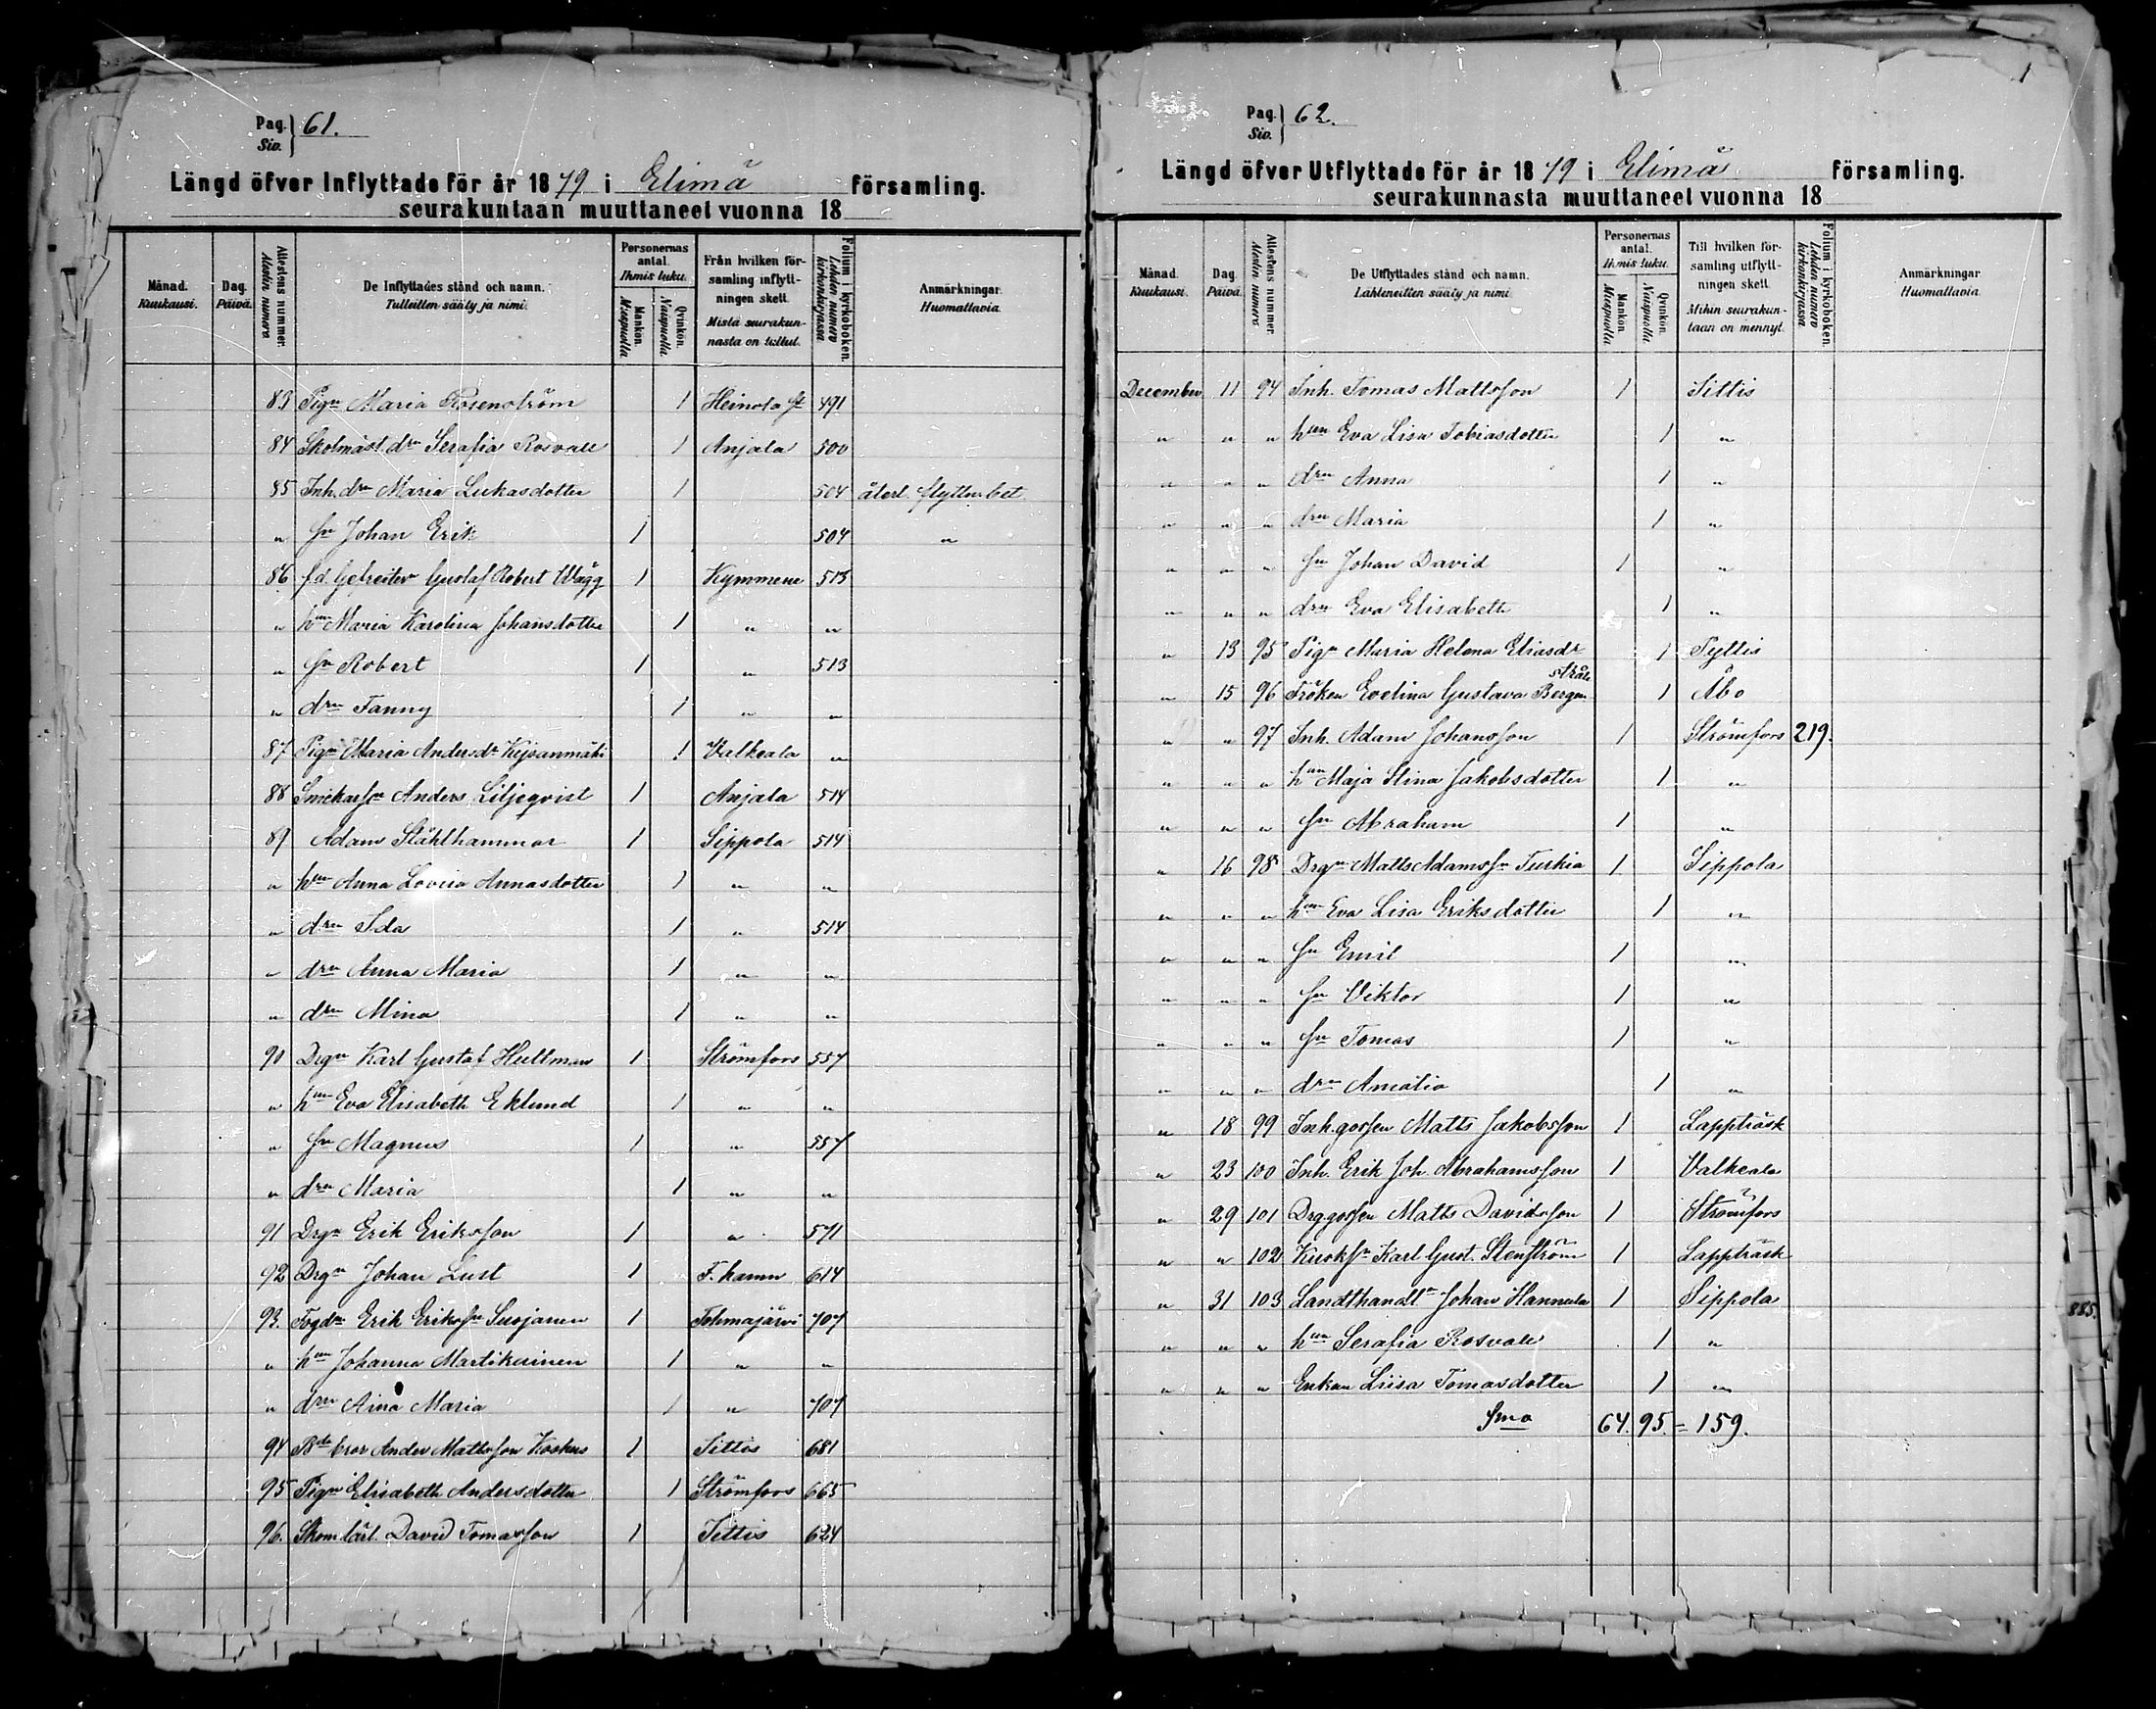 Pag. Siv. 61.
Längd öfver Inflyttade för år 1879 i Elimä församling.
seurakuntaan muuttaneet vuonna 18
Månad. Kuukausi. Dag. Päivä. Attestens nummer. Alestin numero. De Inflyttades stånd och namn. Tulleitten sääty ja nimi. Personernas antal. Ihmis luku. Mankön. Miespuolta Qvinkön. Naispuolta Från hvilken församling inflyttningen skett. Mistä seurakunnasta on tullut. Folium i kyrkoboken. Lehden numero kirkonkirjassa Anmärkningar. Huomattavia.
83 Pign Maria Rosenström 1 Heinola st 491
84 Skolmäst. drn Serafia Rosvall 1 Anjala 500
85 Inh. drn Maria Lukasdotter 1 504 återl. flyttn.bet.
" sn Johan Erik 1 504 "
86. f.d. Gefreiter Gustaf Robert Wägg 1 Kymmene 513
" hun Maria Karolina Johansdotter 1 " "
" sn Robert 1 " 513
" drn Fanny 1 " "
87 Pign Maria Andersdr 1 Valkeala "
88 Snickarsn Anders Liljeqvist 1 Anjala 514
89 Adam Ståhlhammar 1 Sippola 514
" hun Anna Lovisa Annasdotter 1 " "
" drn Ida 1 " 514
" drn Anna Maria 1 " "
" drn Mina 1 " "
90 Drgn Karl Gustaf Hultman 1 Strömfors 557
" hun Eva Elisabeth Eklund 1 " "
" sn Magnus 1 " 557
" drn Maria 1 " "
91 Drgn Erik Eriksson 1 " 571
92 Drgn Johan Lust 1 F. hamn 614
93. Fogdn Erik Erikssn Susjanen 1 Tohmajärvi 707
" hun Johanna Martikainen 1 " "
" drn Aina Maria 1 " 707
94 Bde bror Anders Mattsson Koskus 1 Sittis 681
95 Pign Elisabeth Andersdotter 1 Strömfors 665
96. Skom.lärl. David Tomasson 1 Sittis 624
Pag. Siv. 62.
Längd öfver Utflyttade för år 1879 i Elimä församling.
seurakunnasta muuttaneet vuonna 18
Månad. Kuukausi. Dag. Päivä. Attestens nummer. Alestin numero. De Utflyttades stånd och namn. Lähteneitten sääty ja nimi. Personernas antal. Ihmis luku. Mankön. Miespuolta Qvinkön. Naispuolta. Till hvilken församling utflyttningen skett. Mihin seurakuntaan on mennyt. Folium i kyrkoboken. Lehden numero kirkonkirjassa Anmärkningar. Huomattavia.
December 11 94 Inh. Tomas Mattsson 1 Sittis
" " " hun Eva Lisa Tobiasdotter 1 "
" " " drn Anna 1 "
" " " drn Maria 1 "
" " " sn Johan David 1 "
" " " drn Eva Elisabeth 1 "
" 13 95 Pign Maria Helena Eliasdr 1 Pyttis
stråle
" 15 96 Fröken Evelina Gustava Bergen 1 Åbo
" " 97 Inh. Adam Johansson 1 Strömfors 219.
" " " hun Maja Stina Jakobsdotter 1 "
" " " sn Abraham 1 "
" 16 98 Drgn Matts Adamssn Turkia 1 Sippola
" " " hun Eva Lisa Eriksdotter 1 "
" " " sn Emil 1 "
" " " sn Viktor 1 "
" " " sn Tomas 1 "
" " " drn Amalia 1 "
" 18 99 Inh.gossen Matts Jakobsson 1 Lappträsk
" 23 100 Inh. Erik Joh. Abrahamsson 1 Valkeala
" 29 101 Drg.gossen Matts Davidsson 1 Strömfors
" " 102 Kusksn Karl Gust. Stenström 1 Lappträsk
" 31 103 Landthandln Johan Hannula 1 Sippola
" " " hun Serafia Rosvall 1 "
" " " Enkan Liisa Tomasdotter 1 "
Sma 64. 95. = 159.
885.